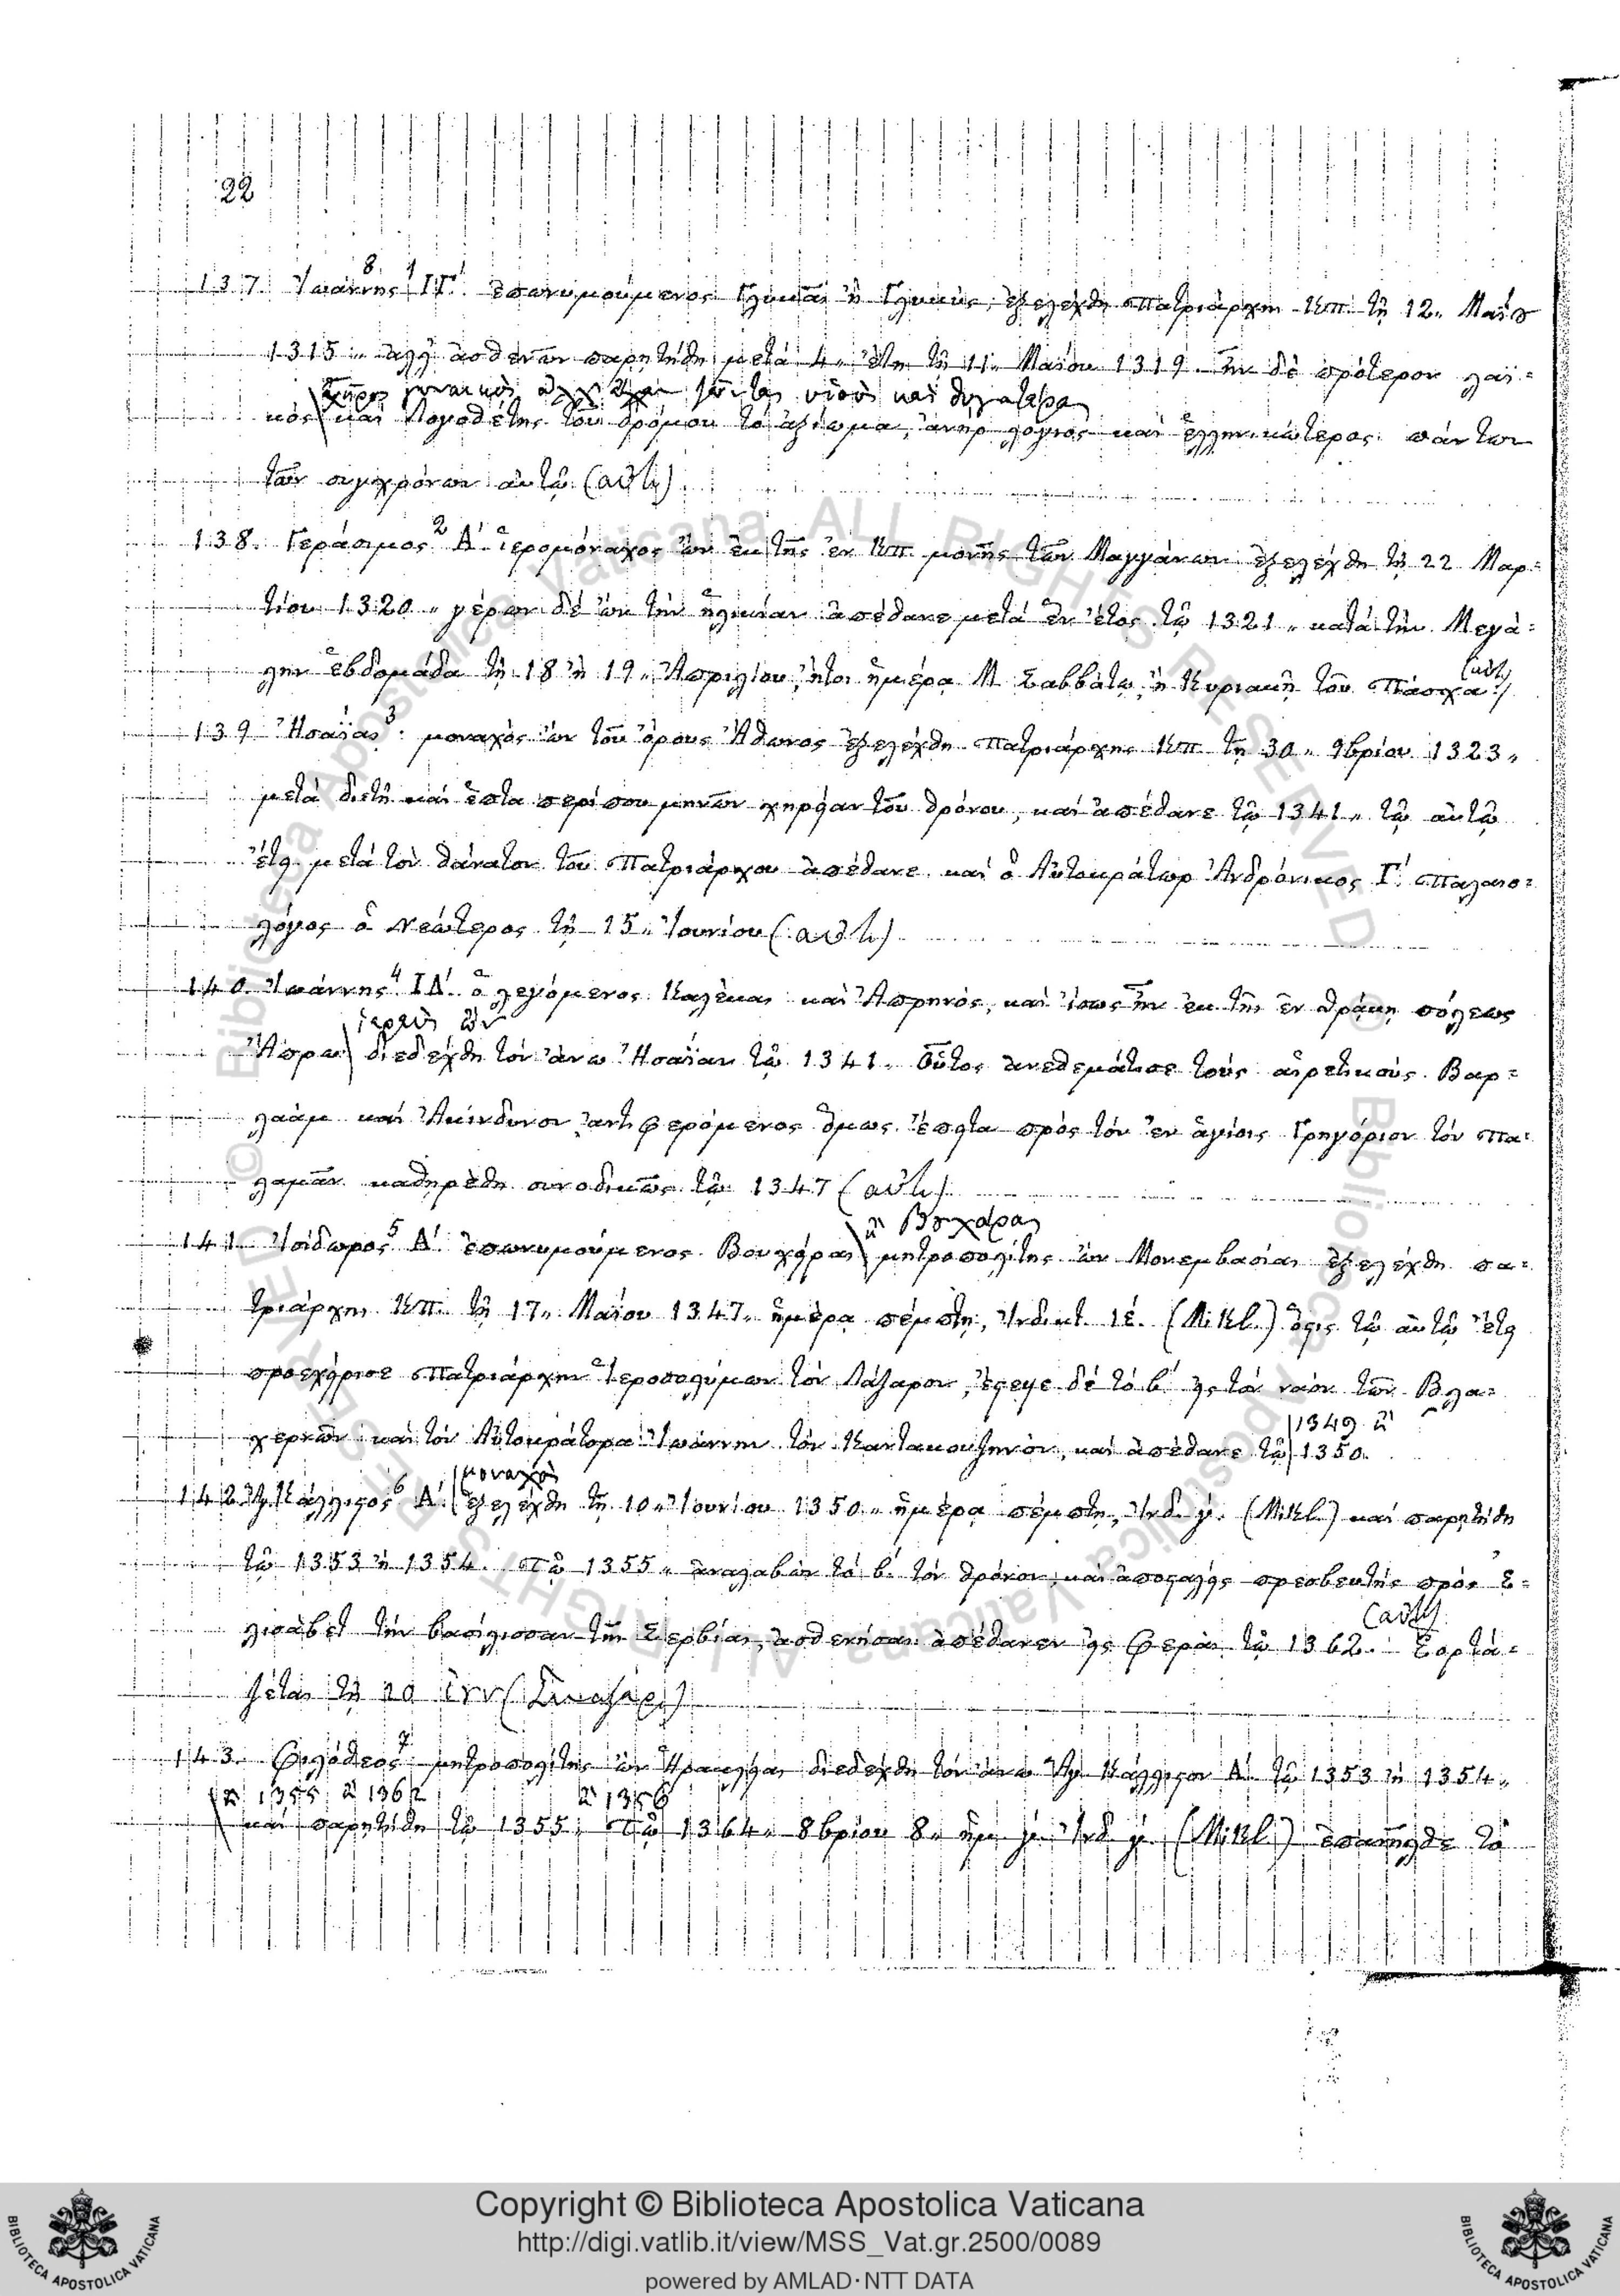 22
137. Ἰωάννης ΙΓ΄. ἐπονυμούμενος Γλυκᾶς ἢ Γλυκὺς, ἐξελέχθη Πατριάρχης Κπ. τῇ 12. Μαΐου
1315. ἀλλ' ἀσθενῶν παρῃτήθη μετὰ 4. ἔτη τῇ 11. Μαΐου 1319. ἦν δὲ πρότερον λαϊ=
υἱοὺς καὶ θυγατέρα
κὸς καὶ Λογοθέτης τοῦ δρόμου τὸ ἀξίωμα, ἀνὴρ λόγιος καὶ ἑλληνικώτερος πάντων
τῶν συγχρόνων αὐτῷ (αὐτ)
138. Γεράσιμος 2 Α΄. ἱερομόναχος ὢν ἐκ τῆς ἐν Κπ. μονῆς τῶν Μαγγάνων ἐξελέχθη τῇ 22 Μαρ=
τίου 1320. γέρων δὲ ὢν τὴν ἡλικίαν ἀπέθανε μετὰ ἓν ἔτος τῷ 1321. κατὰ τὴν Μεγά=
λην ἑβδομάδα τῇ 18 ἢ 19. Ἀπριλίου, ἤτοι ἡμέρᾳ Μ. Σαββάτῳ, ἢ Κυριακῇ τοῦ Πάσχα
139. Ἡσαΐας 3 μοναχὸς ὢν τοῦ ὄρους Ἄθωνος ἐξελέχθη Πατριάρχης Κπ. τῇ 30. 9βρίου 1323.
μετὰ διετῆ καὶ ἑπτα περίπου μηνῶν χηρείαν τοῦ θρόνου, καὶ ἀπέθανε τῷ 1341. τῷ αὐτῷ
ἔτει μετὰ τὸν θάνατον τοῦ Πατριάρχου ἀπέθανε καὶ ὁ Αὐτοκράτωρ Ἀνδρόνικος Γ΄. Παλαιο=
λόγος ὁ Νεώτερος τῇ 15. Ἰουνίου (αὐτ)
140. Ἰωάννης 4 ΙΔ΄. ὁ λεγόμενος Καλέκας καὶ Ἀπρηνὸς, καὶ ἴσως ἦν ἐκ τῆς ἐν Θράκῃ πόλεως
ἱερεὺς ὢν
Ἄπρω διεδέχθη τὸν ἄνω Ἡσαΐαν τῷ 1341. Οὗτος ἀνεθεμάτισε τοὺς αἱρετικοὺς Βαρ=
λαὰμ καὶ Ἀκίνδυνον ἀντιφερόμενος ὅμως ἔπειτα πρὸς τὸν ἐν ἁγίοις Γρηγόριον τὸν Πα=
λαμᾶν καθῃρέθη συνοδικῶς τῷ 1347 (αὐτ)
ἢ Βουχάρας
141. Ἰσίδωρος 5 Α΄. ἐπωνυμούμενος Βουχείρας μητροπολίτης ὢν Μονεμβασίας ἐξελέχθη πα=
τριάρχης Κπ. τῇ 17. Μαΐου 1347. ἡμέρᾳ πέμπτῃ, Ἰνδικτ. ΙΕ. (Mikl.) ὅστις τῷ αὐτῷ ἔτει
προεχείρισε Πατριάρχην Ἱεροσολύμων τὸν Λάζαρον, ἔστεψε δὲ τὸ β΄ εἰς τὸν ναὸν τῶν Βλα=
1349 ἢ
χερνῶν καὶ τὸν Αὐτοκράτορα Ἰωάννην τὸν Καντακουζηνὸν, καὶ ἀπέθανε τῷ 1350.
μοναχὸς
142. Ἅγ. Κάλλιστος 6 Α΄. ἐξελέχθη τῇ 10. Ἰουνίου 1350. ἡμέρᾳ πέμπτῃ, Ἰνδ. γ΄. (Mikl.) καὶ παρῃτήθη
τῷ 1353 ἢ 1354. Τῷ 1355. ἀναλαβὼν τὸ β΄. τὸν θρόνον, καὶ ἀποσταλεὶς πρεσβευτὴς πρὸς Ἐ=
(αὐτ)
λισάβετ τὴν βασίλισσαν τῆς Σερβίας, ἀσθενήσας ἀπέθανεν εἰς Φερὰς τῷ 1362. Ἑορτά=
ζεται τῇ 20 (Συναξάρ.)
143. Φιλόθεος 7 μητροπολίτης ὢν Ἡρακλείας διεδέχθη τὸν ἄνω Ἅγ. Κάλλιστον Α΄. τῷ 1353 ἢ 1354.
ἢ 1355. ἢ 1362 ἢ 1356
καὶ παρῃτήθη τῷ 1355. Τῷ 1364. 8βρίου 8. ἡμ. γ΄. Ἰνδ. γ΄. (Mikl.) ἐπανῆλθε τὸ
Copyright © Biblioteca Apostolica Vaticana
http://digi.vatlib.it/view/MSS_Vat.gr.2500/0089
powered by AMLAD·NTT DATA